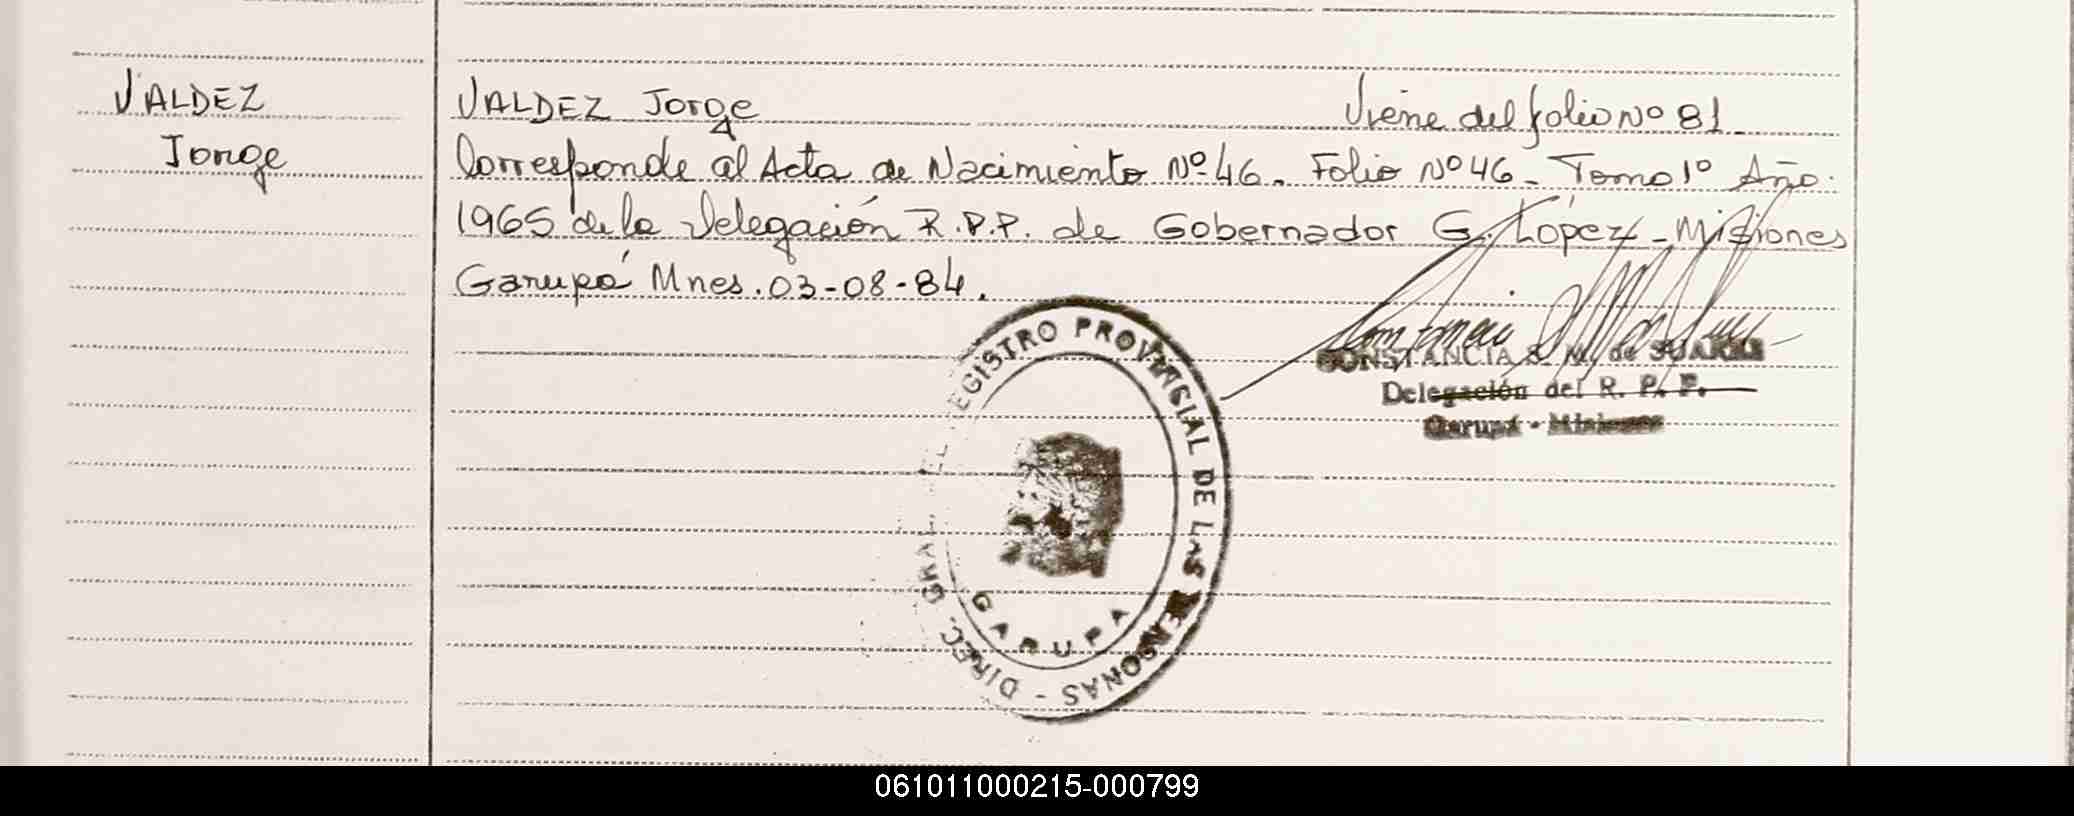 VALDEZ
Jorge
VALDEZ Jorge Viene del folio Nº 81
Corresponde al Acta de Nacimiento Nº 46. Folio Nº 46 - Tomo 1º Año.
1965 de la Delegación R.P.P. de Gobernador G. López - Misiones
Garupá Mnes. 03-08-84.
CONSTANCIA S. M. de SUAREZ
Delegación del R. P. P.
Garupá - Misiones
DIREC. GRAL. DEL REGISTRO PROVINCIAL DE LAS PERSONAS -
GARUPA
061011000215-000799